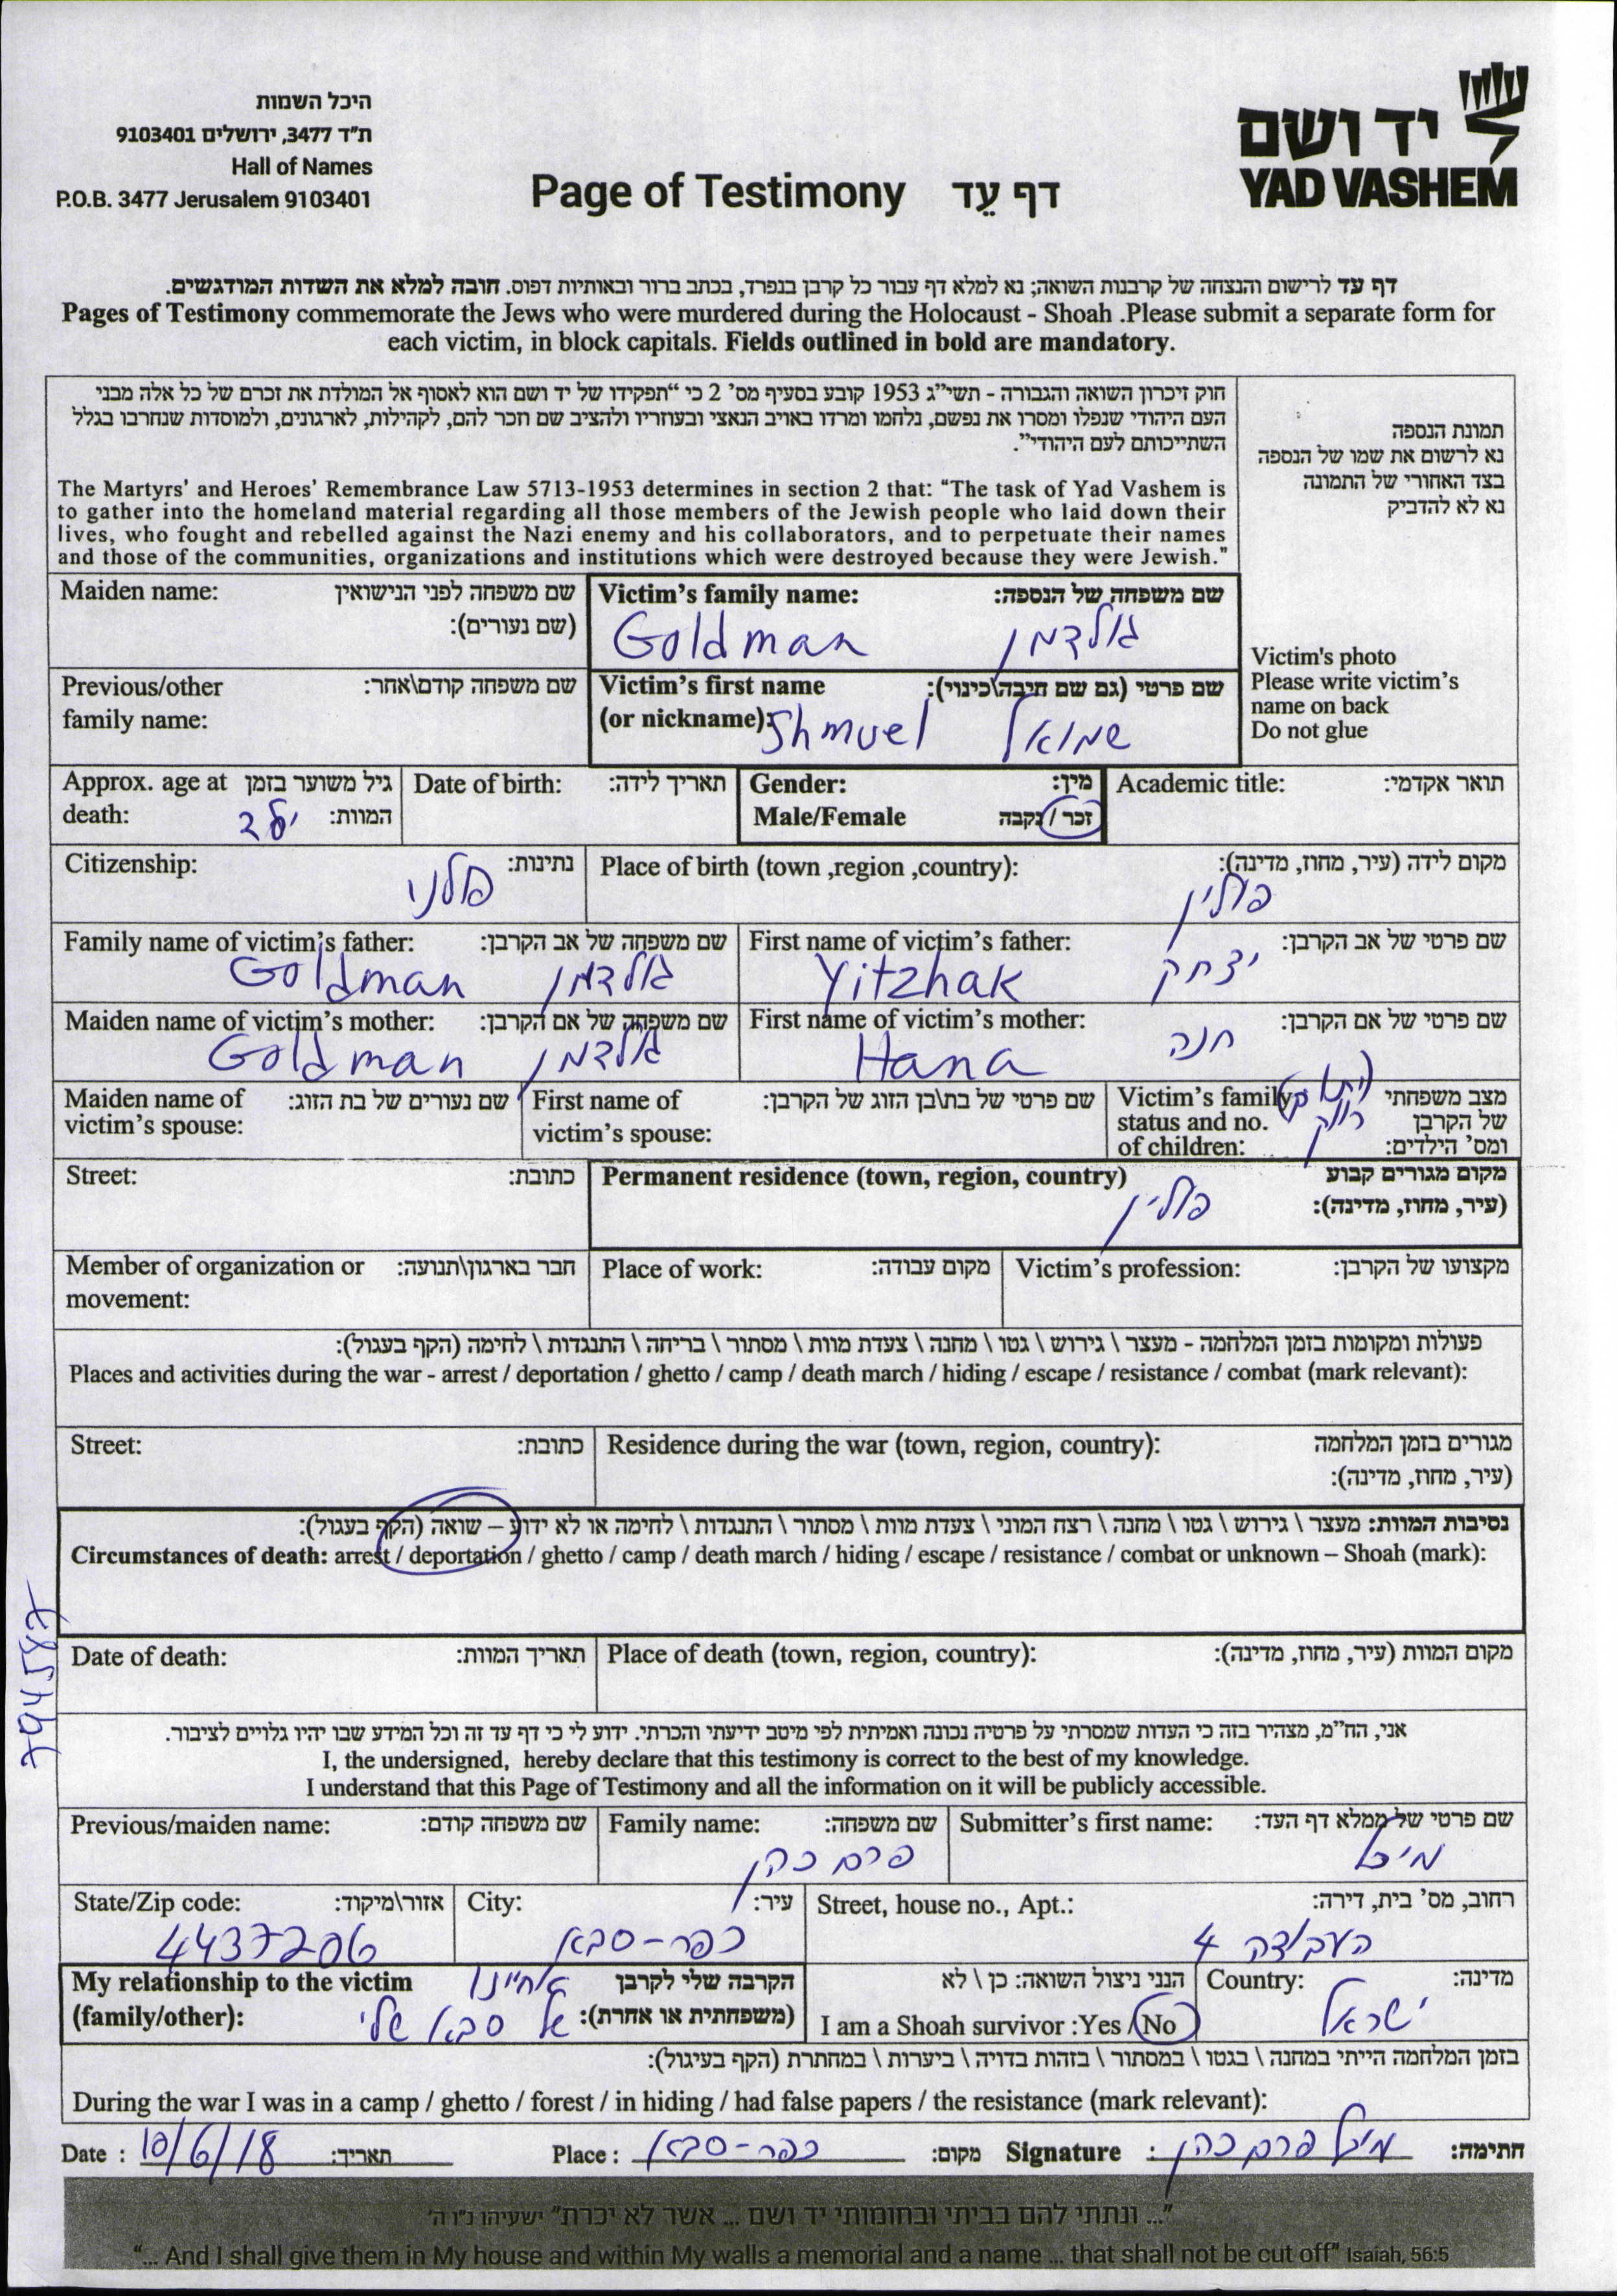 היכל השמות
ת"ד 3477, ירושלים 9103401
Hall of Names
P.O.B. 3477 Jerusalem 9103401
Page of Testimony דף עֵד
יד ושם
YAD VASHEM
דף עד לרישום והנצחה של קרבנות השואה; נא למלא דף עבור כל קרבן בנפרד, בכתב ברור ובאותיות דפוס. חובה למלא את השדות המודגשים.
Pages of Testimony commemorate the Jews who were murdered during the Holocaust - Shoah .Please submit a separate form for
each victim, in block capitals. Fields outlined in bold are mandatory.
חוק זיכרון השואה והגבורה - תשי"ג 1953 קובע בסעיף מס' 2 כי "תפקידו של יד ושם הוא לאסוף אל המולדת את זכרם של כל אלה מבני
העם היהודי שנפלו ומסרו את נפשם, נלחמו ומרדו באויב הנאצי ובעוזריו ולהציב שם וזכר להם, לקהילות, לארגונים, ולמוסדות שנחרבו בגלל
השתייכותם לעם היהודי".
The Martyrs' and Heroes' Remembrance Law 5713-1953 determines in section 2 that: "The task of Yad Vashem is
to gather into the homeland material regarding all those members of the Jewish people who laid down their
lives, who fought and rebelled against the Nazi enemy and his collaborators, and to perpetuate their names
and those of the communities, organizations and institutions which were destroyed because they were Jewish."
תמונת הנספה
נא לרשום את שמו של הנספה
בצד האחורי של התמונה
נא לא להדביק
Victim's photo
Please write victim's
name on back
Do not glue
Maiden name: שם משפחה לפני הנישואין
(שם נעורים):
Victim's family name: שם משפחה של הנספה:
Goldman גולדמן
Previous/other שם משפחה קודם\אחר:
family name:
Victim's first name שם פרטי (גם שם חיבה\כינוי):
(or nickname): Shmuel שמואל
Approx. age at גיל משוער בזמן
death: המוות: ילד
Date of birth: תאריך לידה:
Gender: מין:
Male/Female זכר / נקבה
Academic title: תואר אקדמי:
Citizenship: נתינות:
פולני
Place of birth (town ,region ,country): מקום לידה (עיר, מחוז, מדינה):
פולין
Family name of victim's father: שם משפחה של אב הקרבן:
Goldman גולדמן
First name of victim's father: שם פרטי של אב הקרבן:
Yitzhak יצחק
Maiden name of victim's mother: שם משפחה של אם הקרבן:
Goldman גולדמן
First name of victim's mother: שם פרטי של אם הקרבן:
Hana חנה
Maiden name of שם נעורים של בת הזוג:
victim's spouse:
First name of שם פרטי של בת\בן הזוג של הקרבן:
victim's spouse:
Victim's family מצב משפחתי
status and no. רווק של הקרבן
of children: ומס' הילדים:
Street: כתובת:
Permanent residence (town, region, country) מקום מגורים קבוע
פולין (עיר, מחוז, מדינה):
Member of organization or חבר בארגון\תנועה:
movement:
Place of work: מקום עבודה:
Victim's profession: מקצועו של הקרבן:
פעולות ומקומות בזמן המלחמה - מעצר \ גירוש \ גטו \ מחנה \ צעדת מוות \ מסתור \ בריחה \ התנגדות \ לחימה (הקף בעגול):
Places and activities during the war - arrest / deportation / ghetto / camp / death march / hiding / escape / resistance / combat (mark relevant):
Street: כתובת:
Residence during the war (town, region, country): מגורים בזמן המלחמה
(עיר, מחוז, מדינה):
נסיבות המוות: מעצר \ גירוש \ גטו \ מחנה \ רצח המוני \ צעדת מוות \ מסתור \ התנגדות \ לחימה או לא ידוע – שואה (הקף בעגול):
Circumstances of death: arrest / deportation / ghetto / camp / death march / hiding / escape / resistance / combat or unknown – Shoah (mark):
794587
Date of death: תאריך המוות:
Place of death (town, region, country): מקום המוות (עיר, מחוז, מדינה):
אני, הח"מ, מצהיר בזה כי העדות שמסרתי על פרטיה נכונה ואמיתית לפי מיטב ידיעתי והכרתי. ידוע לי כי דף עד זה וכל המידע שבו יהיו גלויים לציבור.
I, the undersigned, hereby declare that this testimony is correct to the best of my knowledge.
I understand that this Page of Testimony and all the information on it will be publicly accessible.
Previous/maiden name: שם משפחה קודם:
Family name: שם משפחה:
פרס כהן
Submitter's first name: שם פרטי של ממלא דף העד:
מיכל
State/Zip code: אזור\מיקוד:
4437206
City: עיר:
כפר-סבא
Street, house no., Apt.: רחוב, מס' בית, דירה:
העבודה 4
My relationship to the victim הקרבה שלי לקרבן אחיינו
(family/other): (משפחתית או אחרת): של סבא שלי
הנני ניצול השואה: כן \ לא
I am a Shoah survivor :Yes / No
Country: מדינה:
ישראל
בזמן המלחמה הייתי במחנה \ בגטו \ במסתור \ בזהות בדויה \ ביערות \ במחתרת (הקף בעיגול):
During the war I was in a camp / ghetto / forest / in hiding / had false papers / the resistance (mark relevant):
Date : 10/6/18 תאריך: Place : כפר-סבא מקום: Signature : מיכל פרס כהן חתימה:
"... ונתתי להם בביתי ובחומותי יד ושם ... אשר לא יכרת" ישעיהו נ"ו ה'
"... And I shall give them in My house and within My walls a memorial and a name ... that shall not be cut off" Isaiah, 56:5